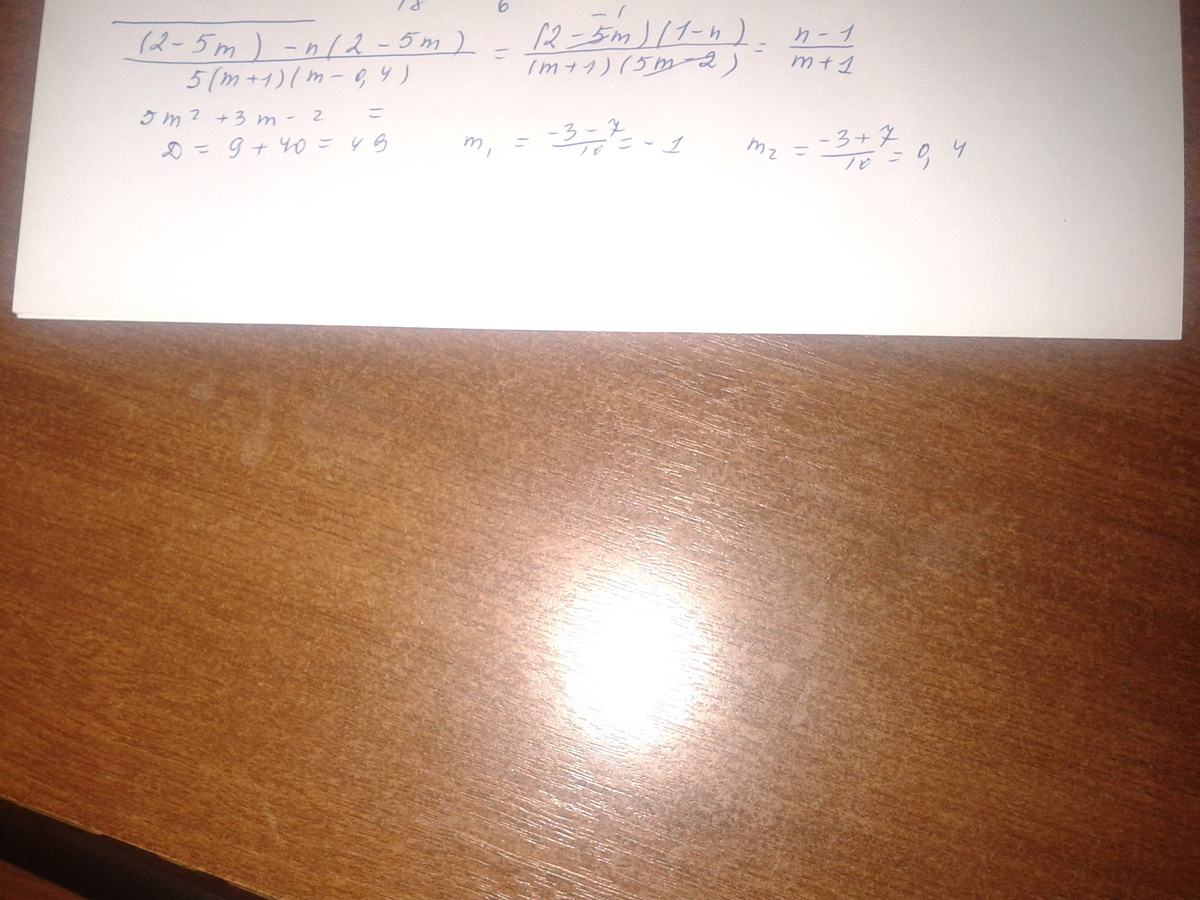 18 6
((2-5m) -n(2-5m))/(5(m+1)(m-0,4)) = ((2-5m)(1-n))/((m+1)(5m-2)) = (n-1)/(m+1)
-1
5m² +3m - 2 =
D = 9 + 40 = 49 m₁ = (-3-7)/10 = -1 m₂ = (-3+7)/10 = 0,4